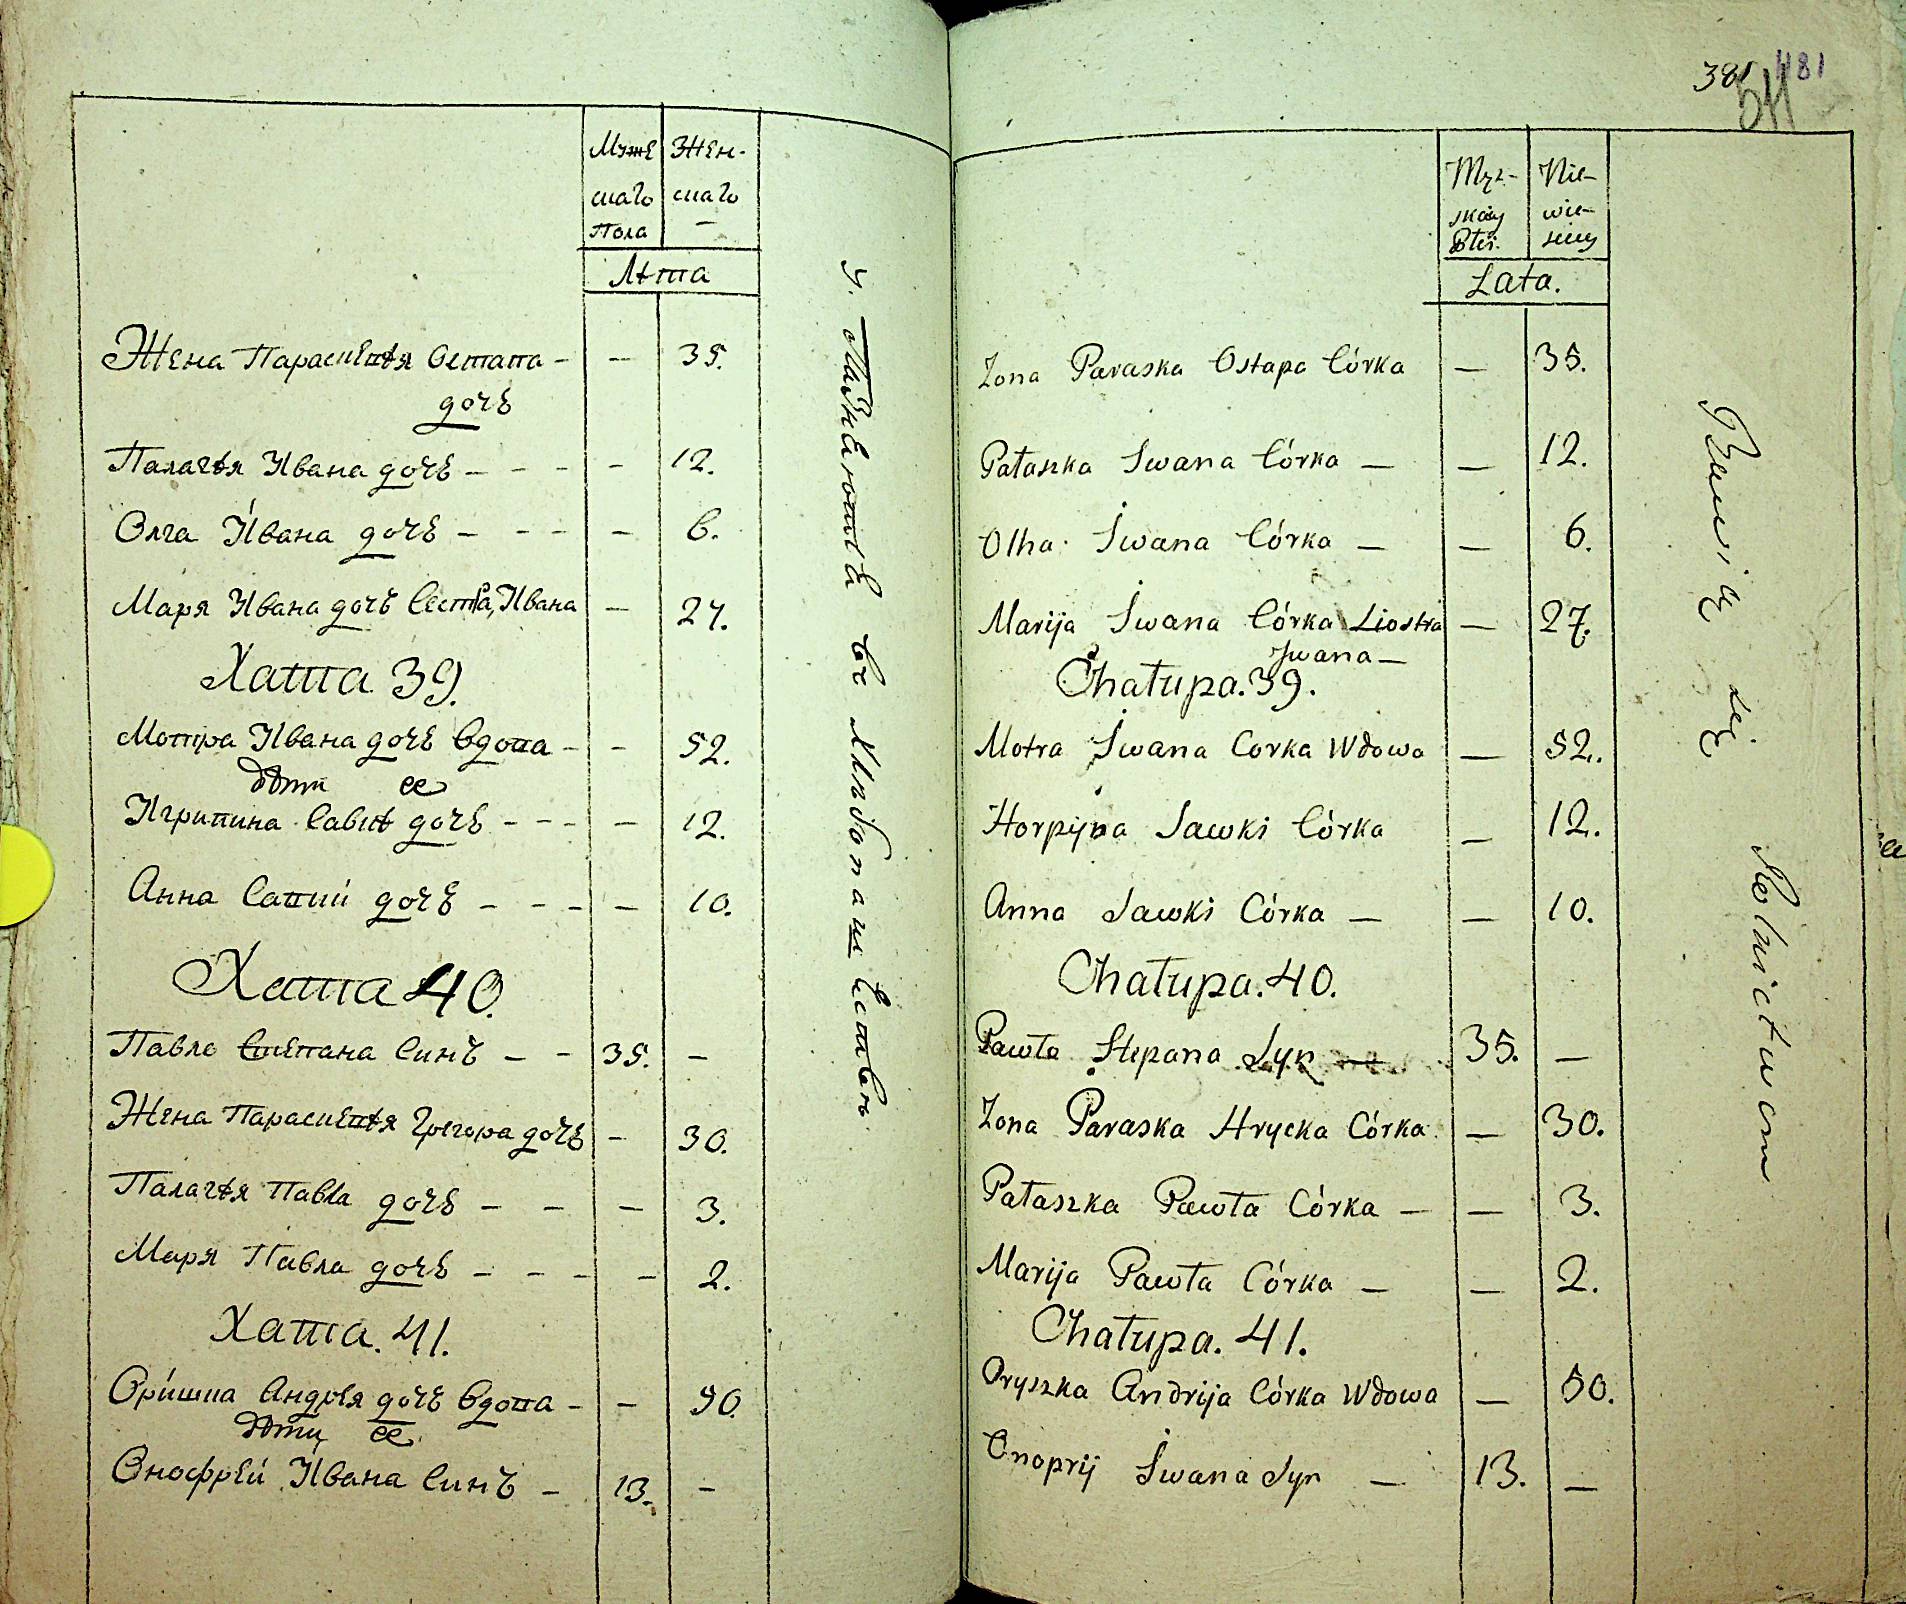 Муже
Жен-
скаго
скаго
Пола
Лѣта
Жена Параскевѣя Остапа - - 35.
дочь
Палагѣя Ивана дочь - - - - 12.
Олга Ивана дочь - - - - 6.
Маря Ивана дочь Сестра, Ивана - 27.
Хата 39.
Мотра Ивана дочь Вдова - - 52.
дѣти ее
Игрипина Савки дочь - - - - 12.
Анна Савки дочь - - - - 10.
Хата 40.
Павло Степана Синъ - - 35. -
Жена Параскевѣя Григора дочь - 30.
Палагѣя Павла дочь - - - 3.
Маря Павла дочь - - - - 2.
Хата. 41.
Оришка Андрѣя дочь Вдова - - 50.
дѣти ее
Онофрей Ивана Синъ - 13. -
381
481
Męz-
Nie-
wie-
Płci.
Lata.
Żona Paraska Ostapa Córka — 35.
Pałaszka Iwana Córka — — 12.
Olha Iwana Córka — — 6.
Marija Iwana Córka Siostra — 27.
Iwana —
Chałupa. 39.
Motra Iwana Corka Wdowa — 52.
Horpyna Sawki Córka — 12.
Anna Sawki Córka — — 10.
Chałupa. 40.
Pawło Stepana Syn — 35. —
Żona Paraska Hrycka Córka — 30.
Pałaszka Pawła Córka — — 3.
Marija Pawła Córka — — 2.
Chałupa. 41.
Oryszka Andrija Córka Wdowa — 50.
Onoprij Iwana Syn — 13. —
Bawią się Rolnictwem